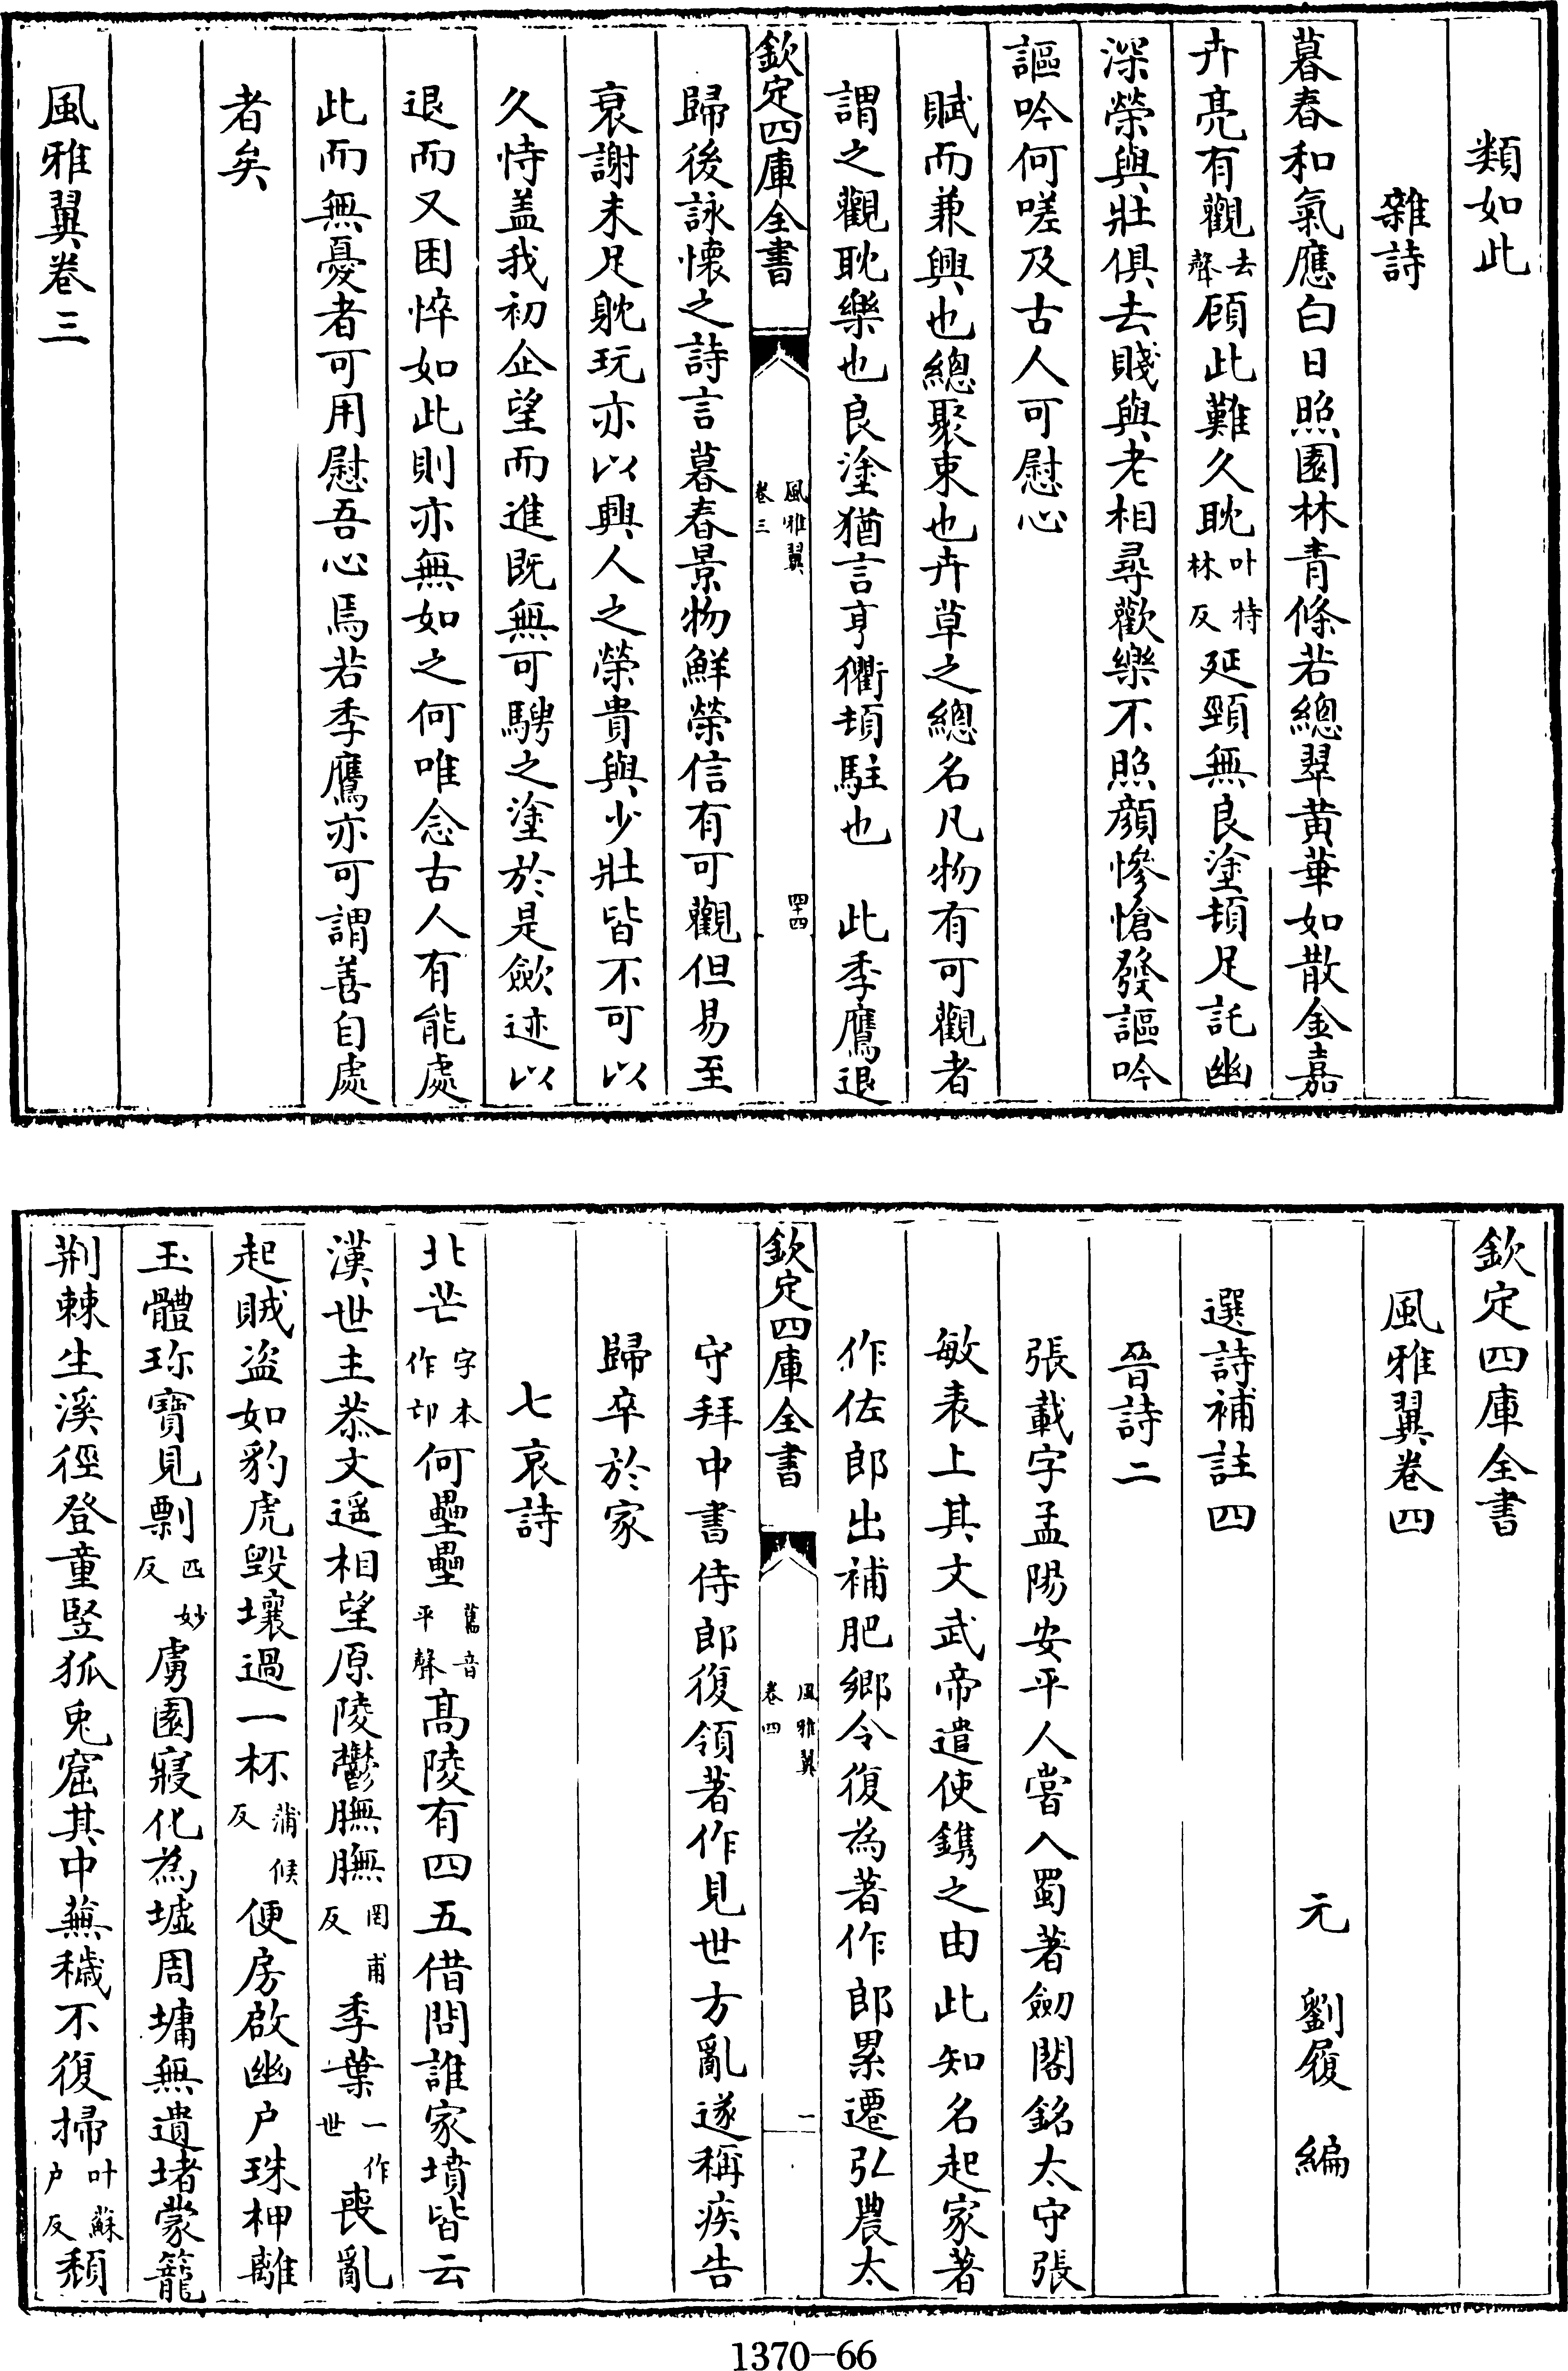 類如此
雜詩
暮春和氣應白日照園林青條若總翠黄華如散金嘉
卉亮有觀去聲顧此難久耽叶持林反延頸無良塗頓足託幽
深榮與壯俱去賤與老相尋歡樂不照顔慘愴發謳吟
謳吟何嗟及古人可慰心
賦而兼興也總聚束也卉草之總名凡物有可觀者
謂之觀耽樂也良塗猶言亨衢頓駐也　此季鷹退
欽定四庫全書
風雅翼
卷三
四十四
歸後詠懷之詩言暮春景物鮮榮信有可觀但易至
衰謝未足躭玩亦以興人之榮貴與少壯皆不可以
久恃盖我初企望而進既無可騁之塗於是歛迹以
退而又困悴如此則亦無如之何唯念古人有能處
此而無憂者可用慰吾心焉若季鷹亦可謂善自處
者矣
風雅翼卷三
欽定四庫全書
風雅翼卷四
元　劉履　編
選詩補註四
晉詩二
張載字孟陽安平人嘗入蜀著劒閣銘太守張
敏表上其文武帝遣使鐫之由此知名起家著
作佐郎出補肥鄉令復為著作郎累遷弘農太
欽定四庫全書
風雅翼
卷四
一
守拜中書侍郎復領著作見世方亂遂稱疾告
歸卒於家
七哀詩
北芒字本作邙何壘壘舊音平聲髙陵有四五借問誰家墳皆云
漢世主恭文遥相望原陵鬱膴膴罔甫反季葉一作世喪亂
起賊盗如豹虎毁壤過一杯蒲候反便房啟幽户珠柙離
玉體珎寶見剽匹妙反虜園寢化為墟周墉無遺堵蒙籠
荆棘生溪徑登童竪狐兎窟其中蕪穢不復掃叶蘇户反頽
1370-66